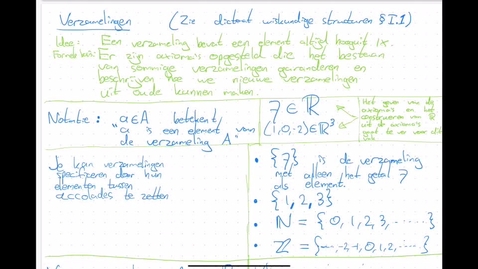 Verzamelingen (Zie dictaat wiskundige structuren § I.1)
Idee: Een verzameling bevat een element altijd hooguit 1x.
Er zijn axioma's opgesteld die het bestaan
van sommige verzamelingen garanderen en
beschrijven hoe we nieuwe verzamelingen
uit oude kunnen maken.
Notatie: "a∈A betekent
a is een element van
de verzameling A"
7 ∈ ℝ
(1,0,-2) ∈ ℝ³
Het geven van de
axioma's en het
construeren van ℝ
uit de axioma's
gaat te ver voor dit
Je kan verzamelingen
specificeren door hun
elementen tussen
accolades te zetten
• {7} is de verzameling
met alleen het getal 7
als element.
• {1,2,3}
• ℕ = {0,1,2,3,......}
• ℤ = {...,-2,-1,0,1,2,...}